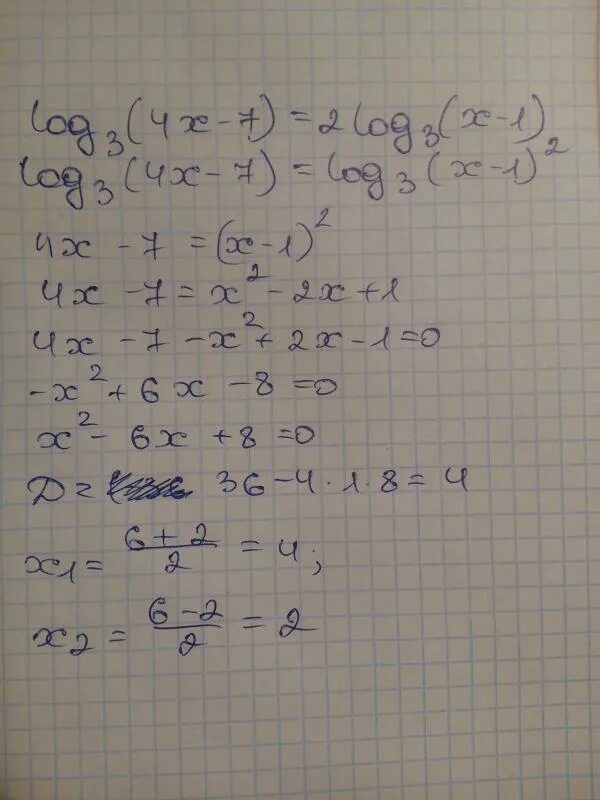 log₃(4x-7)=2log₃(x-1)
log₃(4x-7)=log₃(x-1)²
4x-7=(x-1)²
4x-7=x²-2x+1
4x-7-x²+2x-1=0
-x²+6x-8=0
x²-6x+8=0
D= 36-4·1·8=4
x₁=(6+2)/2=4;
x₂=(6-2)/2=2